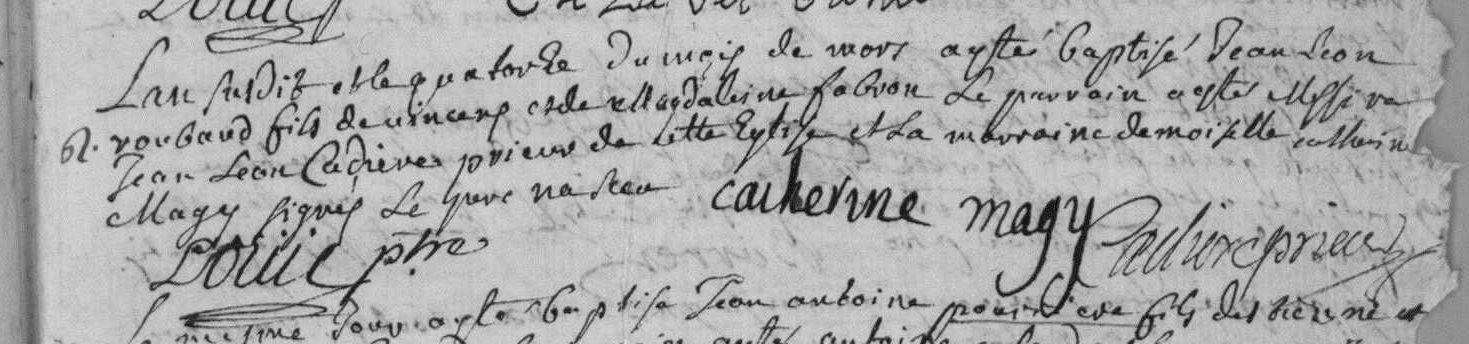 Lan susdit et le quatorze du mois de mars a esté baptisé Jean Leon
62. roubaud fils de vincens et de Magdaleine fabron Le parrain a esté Messire
Jean Leon Cadiere prieur de cette Eglise et La marraine demoiselle catherine
Magy signés Le pere
catherine magy Cadiere prieur
ptre
Le mesme Jour a esté baptisé Jean antoine fils destienne et